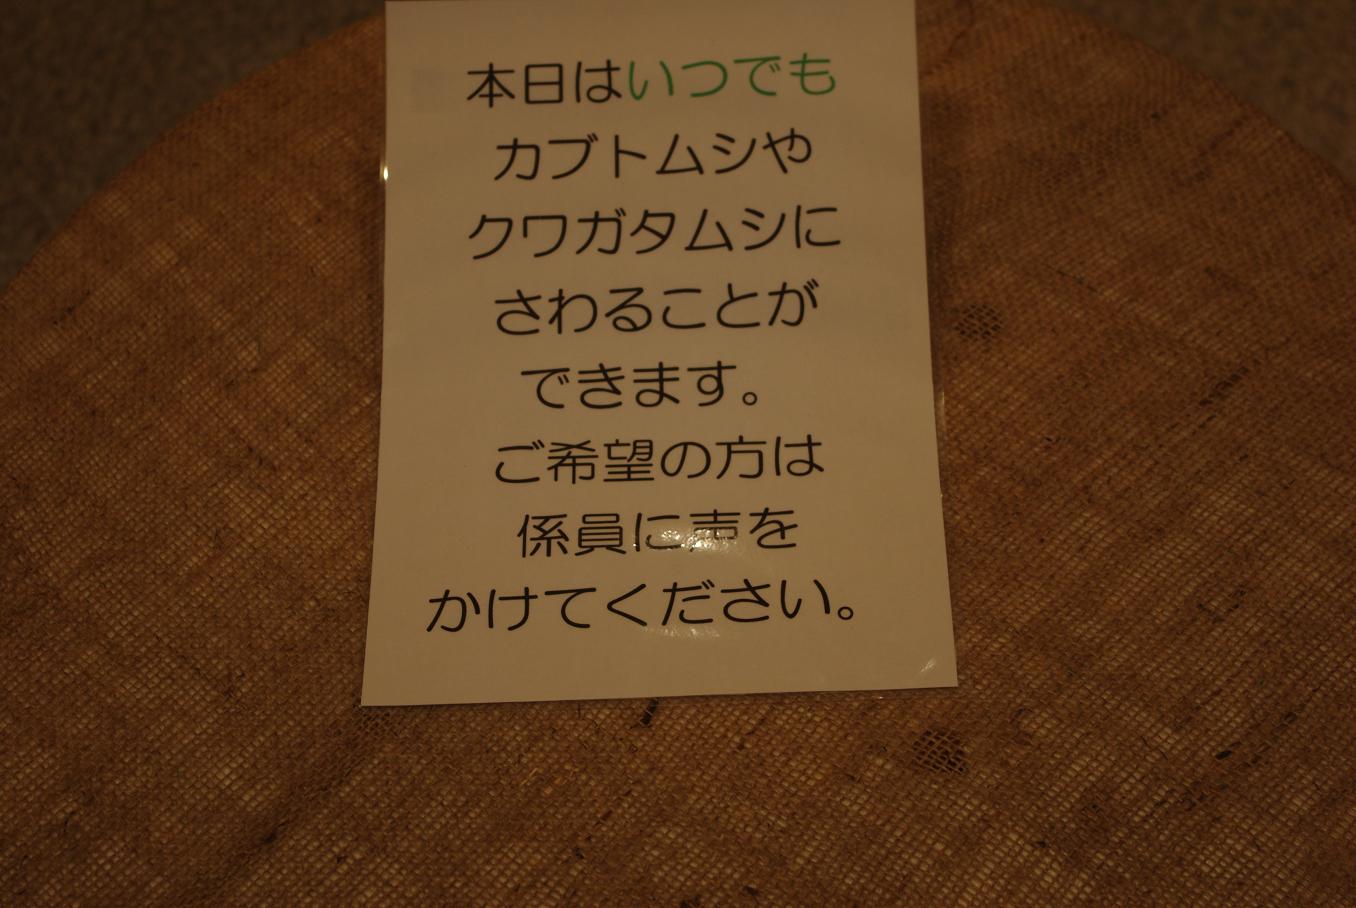 本日はいつでも
カブトムシや
クワガタムシに
さわることが
できます。
ご希望の方は
係員に声を
かけてください。